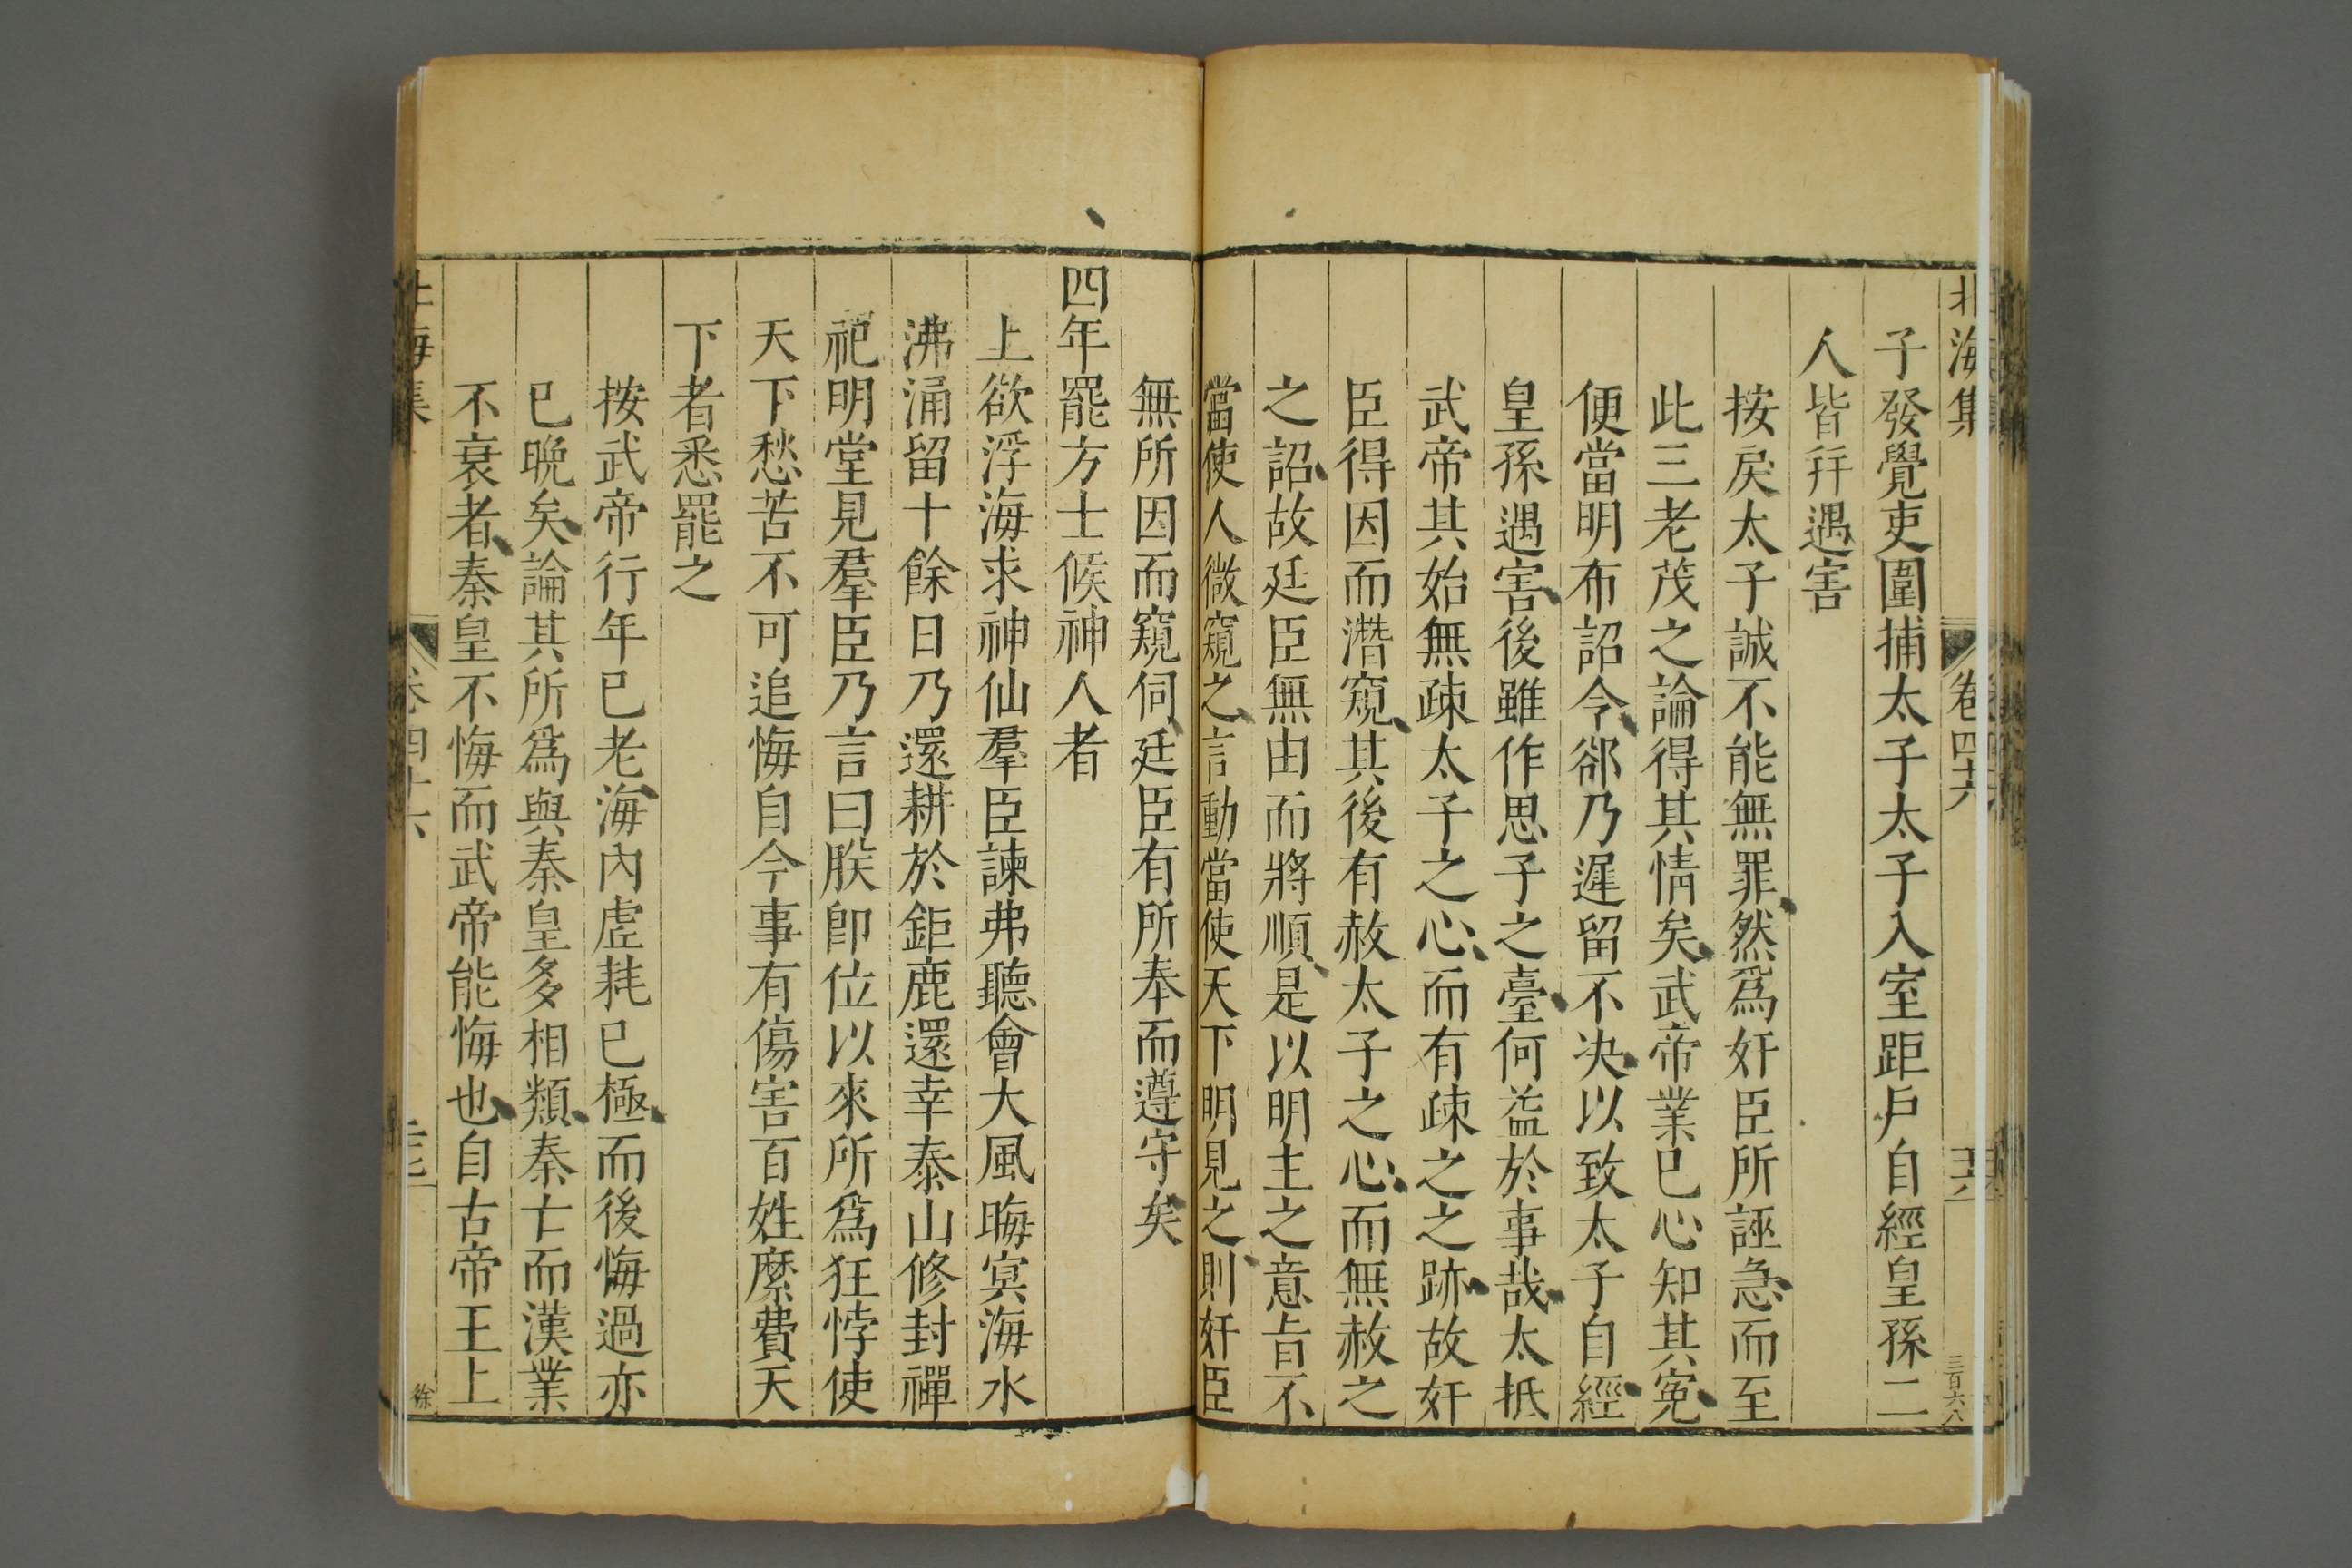 北海集 卷四十六 三百六八
子發覺吏圍捕太子太子入室距戶自經皇孫二
人皆幷遇害
按戾太子誠不能無罪然爲奸臣所誣急而至
此三老茂之論得其情矣武帝業已心知其寃
便當明布詔令郤乃遲留不决以致太子自經
皇孫遇害後雖作思子之臺何益於事哉太抵
武帝其始無疎太子之心而有疎之之跡故奸
臣得因而濳窺其後有赦太子之心而無赦之
之詔故廷臣無由而將順是以明主之意旨不
當使人微窺之言動當使天下明見之則奸臣
無所因而窺伺廷臣有所奉而遵守矣
四年罷方士候神人者
上欲浮海求神仙羣臣諫弗聽會大風晦冥海水
沸涌留十餘日乃還耕於鉅鹿還幸泰山修封禪
祀明堂見羣臣乃言曰朕卽位以來所爲狂悖使
天下愁苦不可追悔自今事有傷害百姓糜費天
下者悉罷之
按武帝行年已老海內虛耗已極而後悔過亦
已晩矣論其所爲與秦皇多相類秦亡而漢業
不衰者秦皇不悔而武帝能悔也自古帝王上
北海集 卷四十六 徐